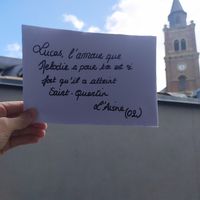 Lucas, l'amour que
Mélodie a pour toi est si
fort qu'il a atteint
Saint-Quentin
L'Aisne (02)